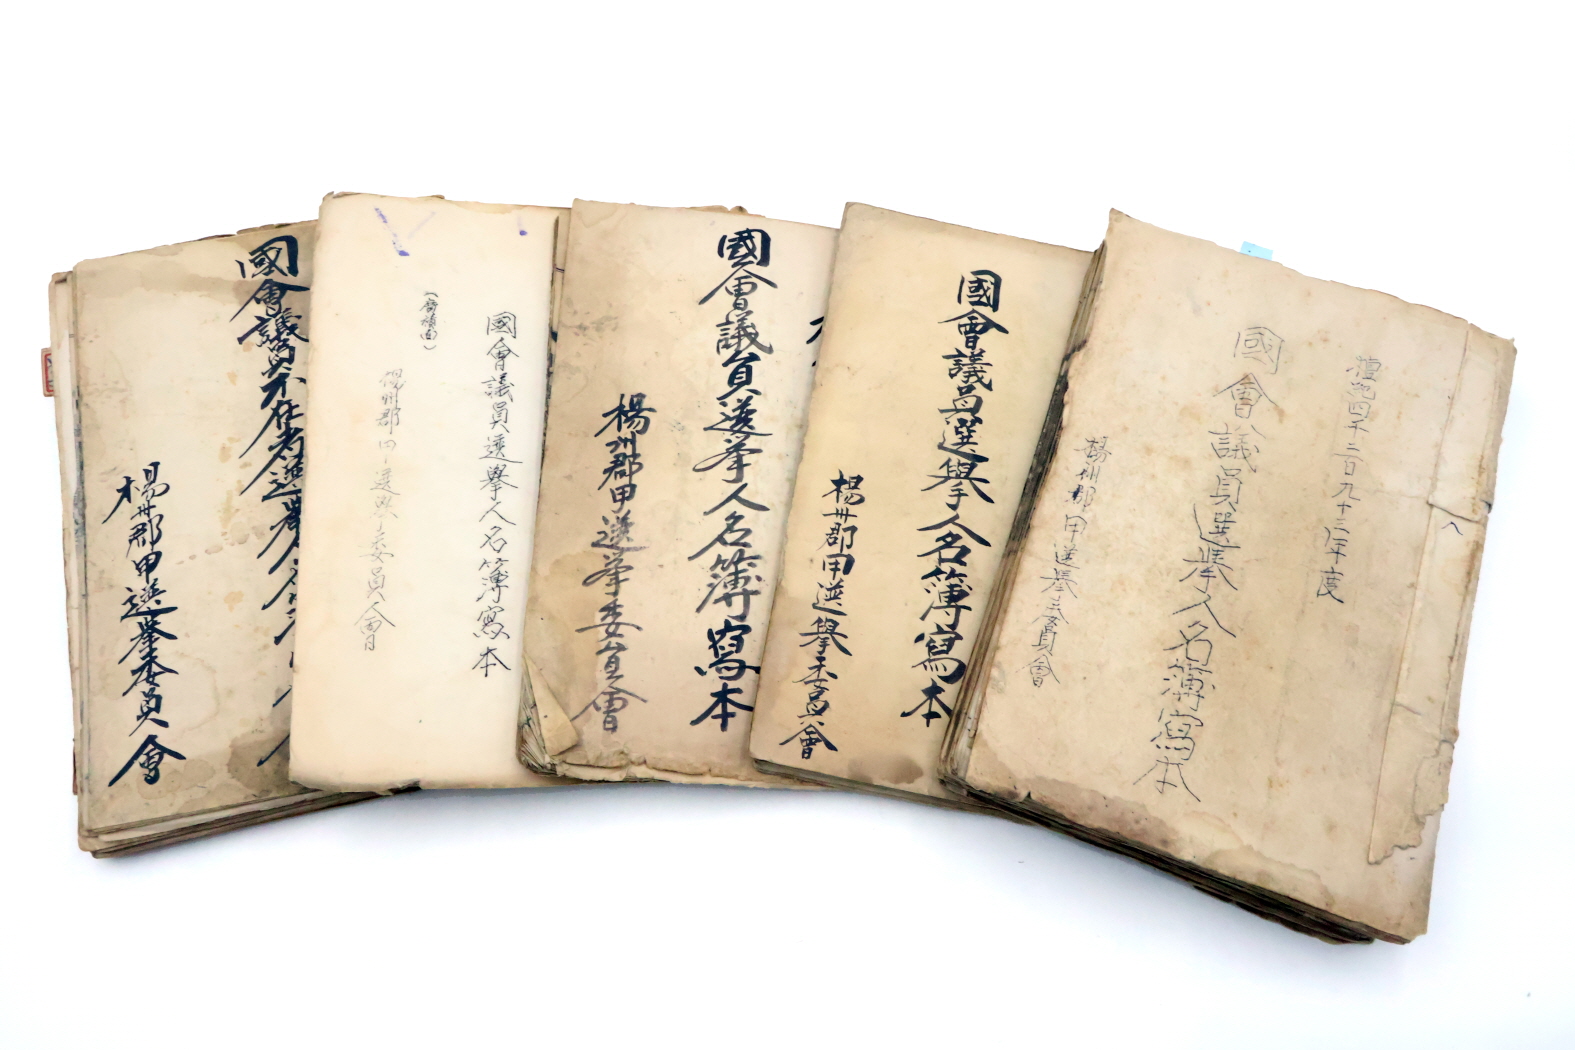 國會議員不在者選擧人名
楊州郡甲選擧委員會
國會議員選擧人名簿寫本
楊州郡甲選擧委員會
國會議員選挙人名簿寫本
楊州郡甲選挙委員會
國會議員選擧人名簿寫本
楊州郡甲選擧委員會
檀紀四千二百九十三年度
國會議員選擧人名簿寫本
楊州郡甲選擧委員會